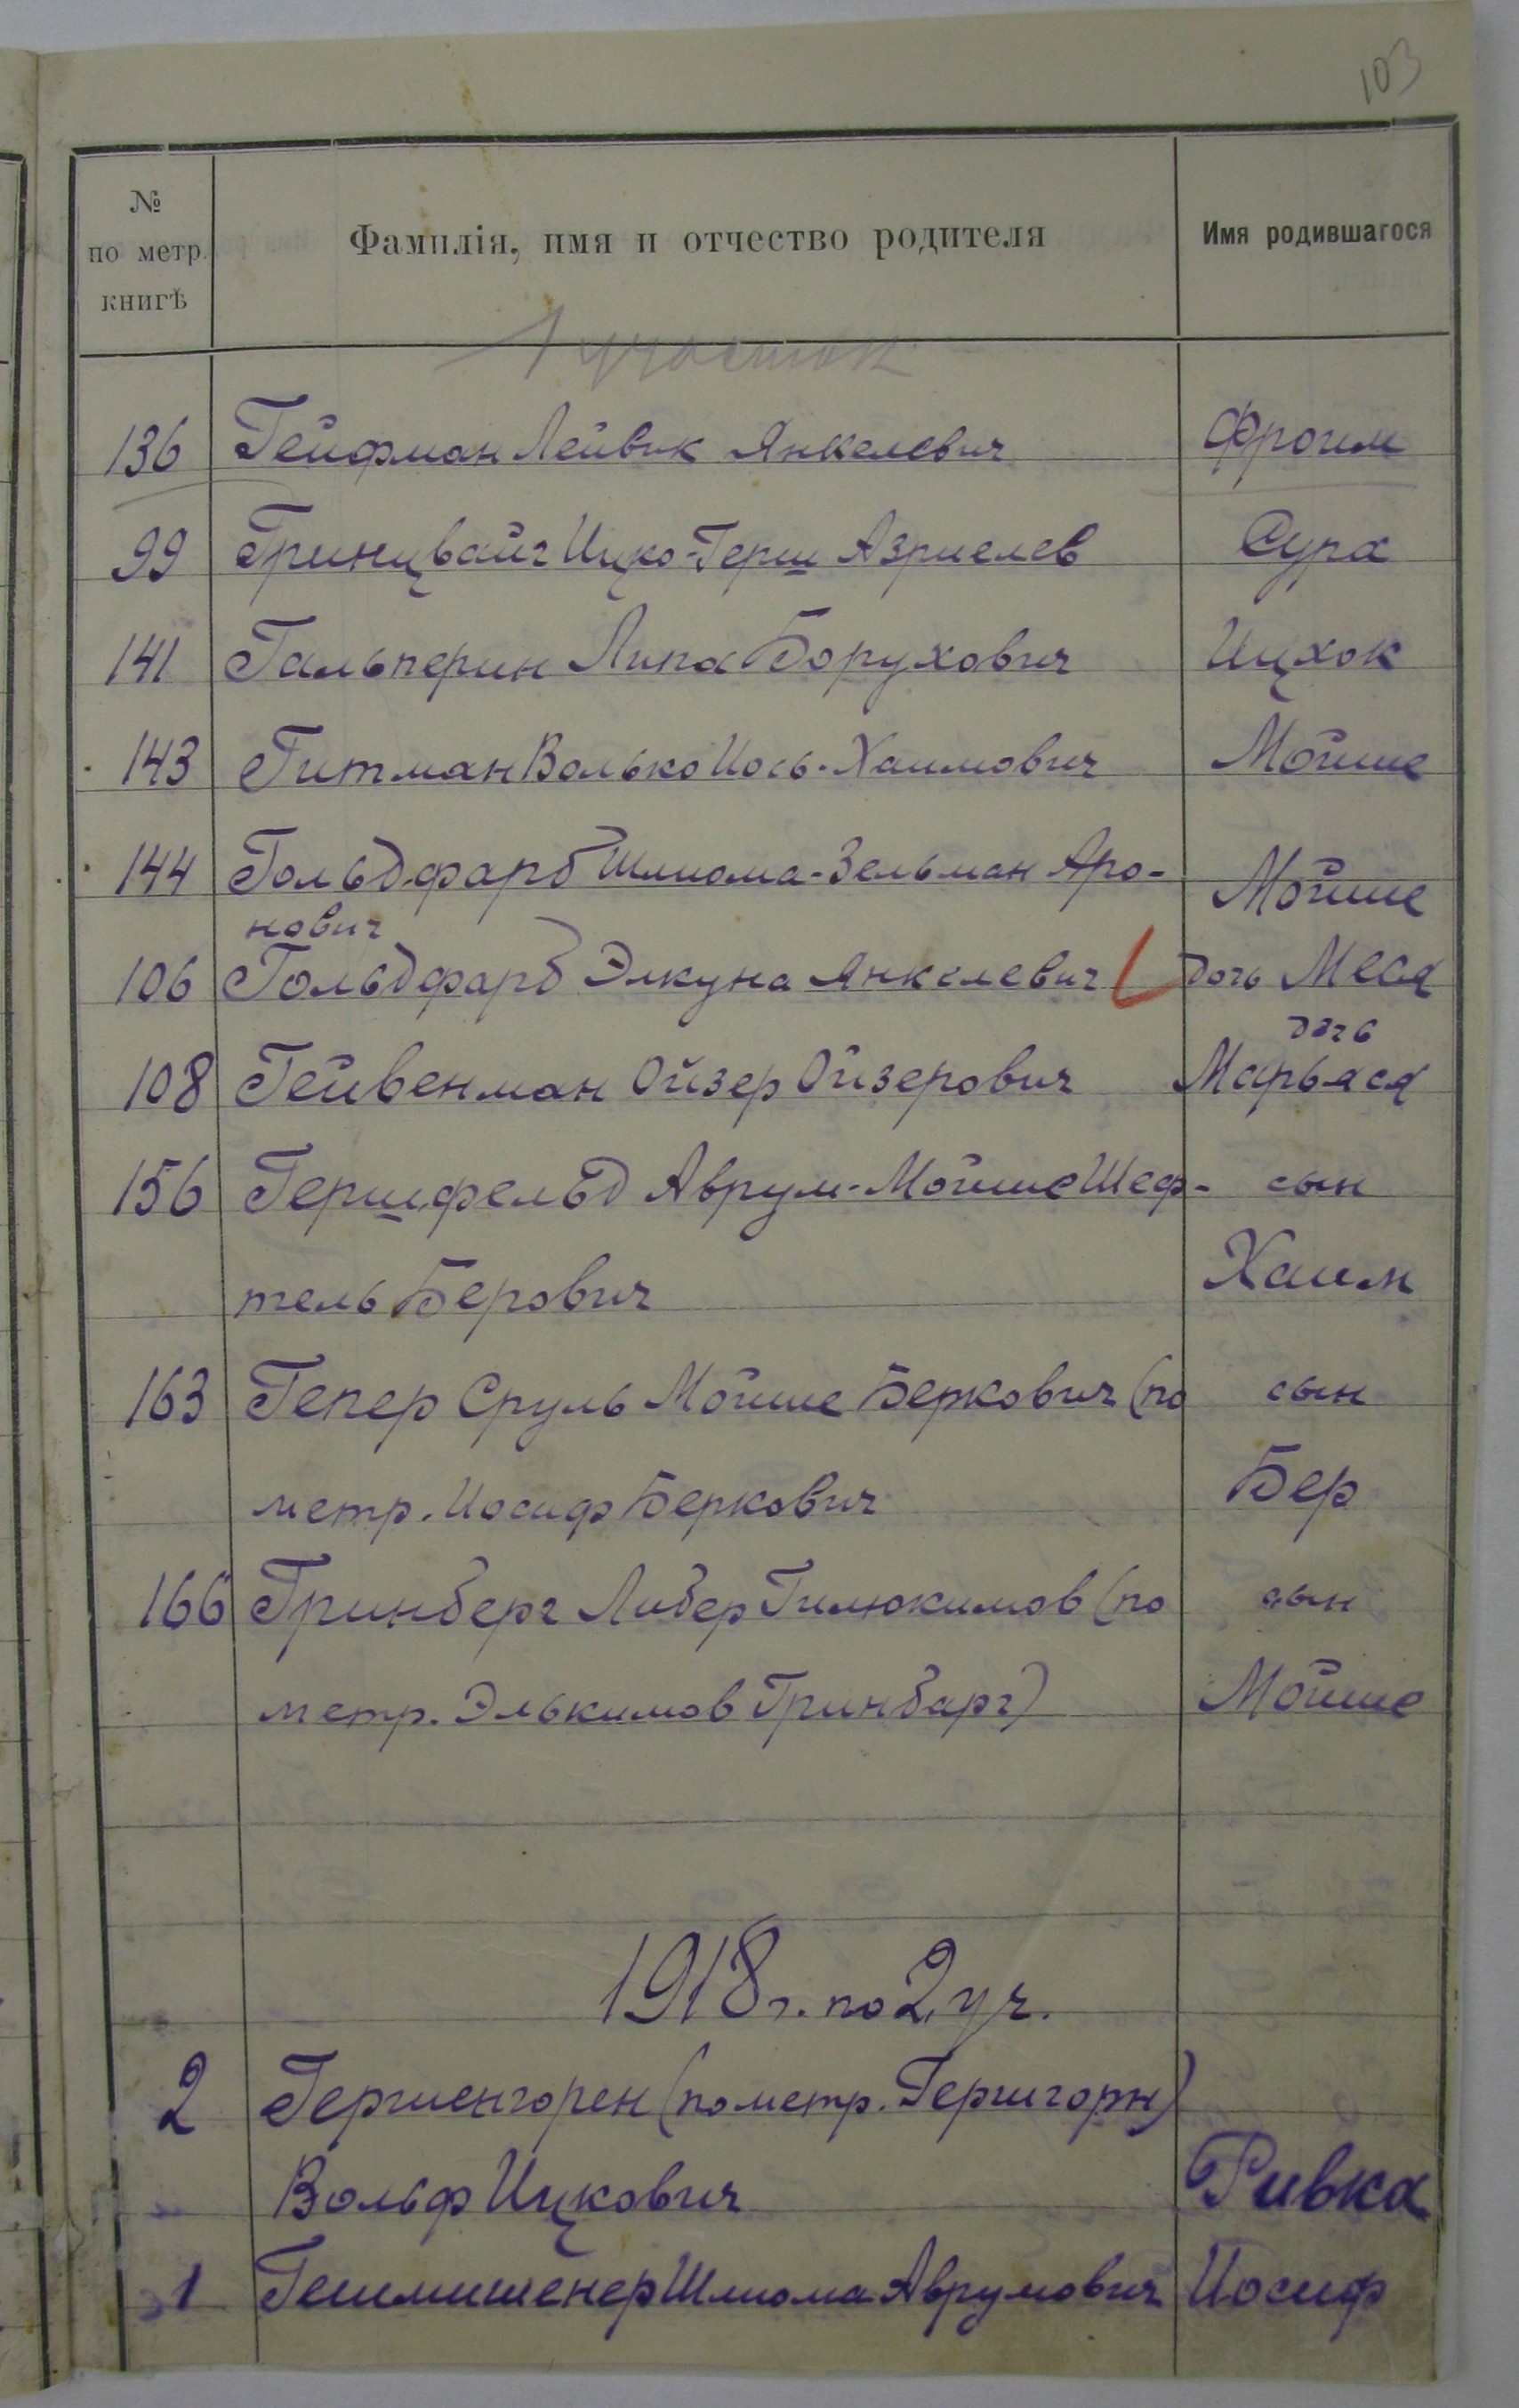 103
№
по метр.
книгѣ
Фамилія, имя и отчество родителя
Имя родившагося
1 участок
136 Гейфман Лейвик Янкелевич Фроим
99 Гринцвайг Ицко-Герш Азриелев Сура
141 Гальперин Липа Борухович Ицхок
143 Гитман Волько Иось-Хаимович Мойше
144 Гольдфарб Шлиома-Зельман Аро- Мойше
нович
106 Гольдфарб Элкуна Янкелевич дочь Меся
дочь
108 Гейвенман Ойзер Ойзерович Марьяся
156 Гершфельд Аврум-Мойше Шеф- сын
тель Берович Хаим
163 Гепер Сруль Мойше Беркович (по сын
метр. Иосиф Беркович Бер
166 Гринберг Либер Гилюкимов (по сын
метр. Элькимов Гринбарг) Мойше
1918 г. по 2 уч.
2 Гершенгорен (по метр. Гершгорн)
Вольф Ицкович Ривка
1 Гешмишенер Шлиома Аврумович Иосиф